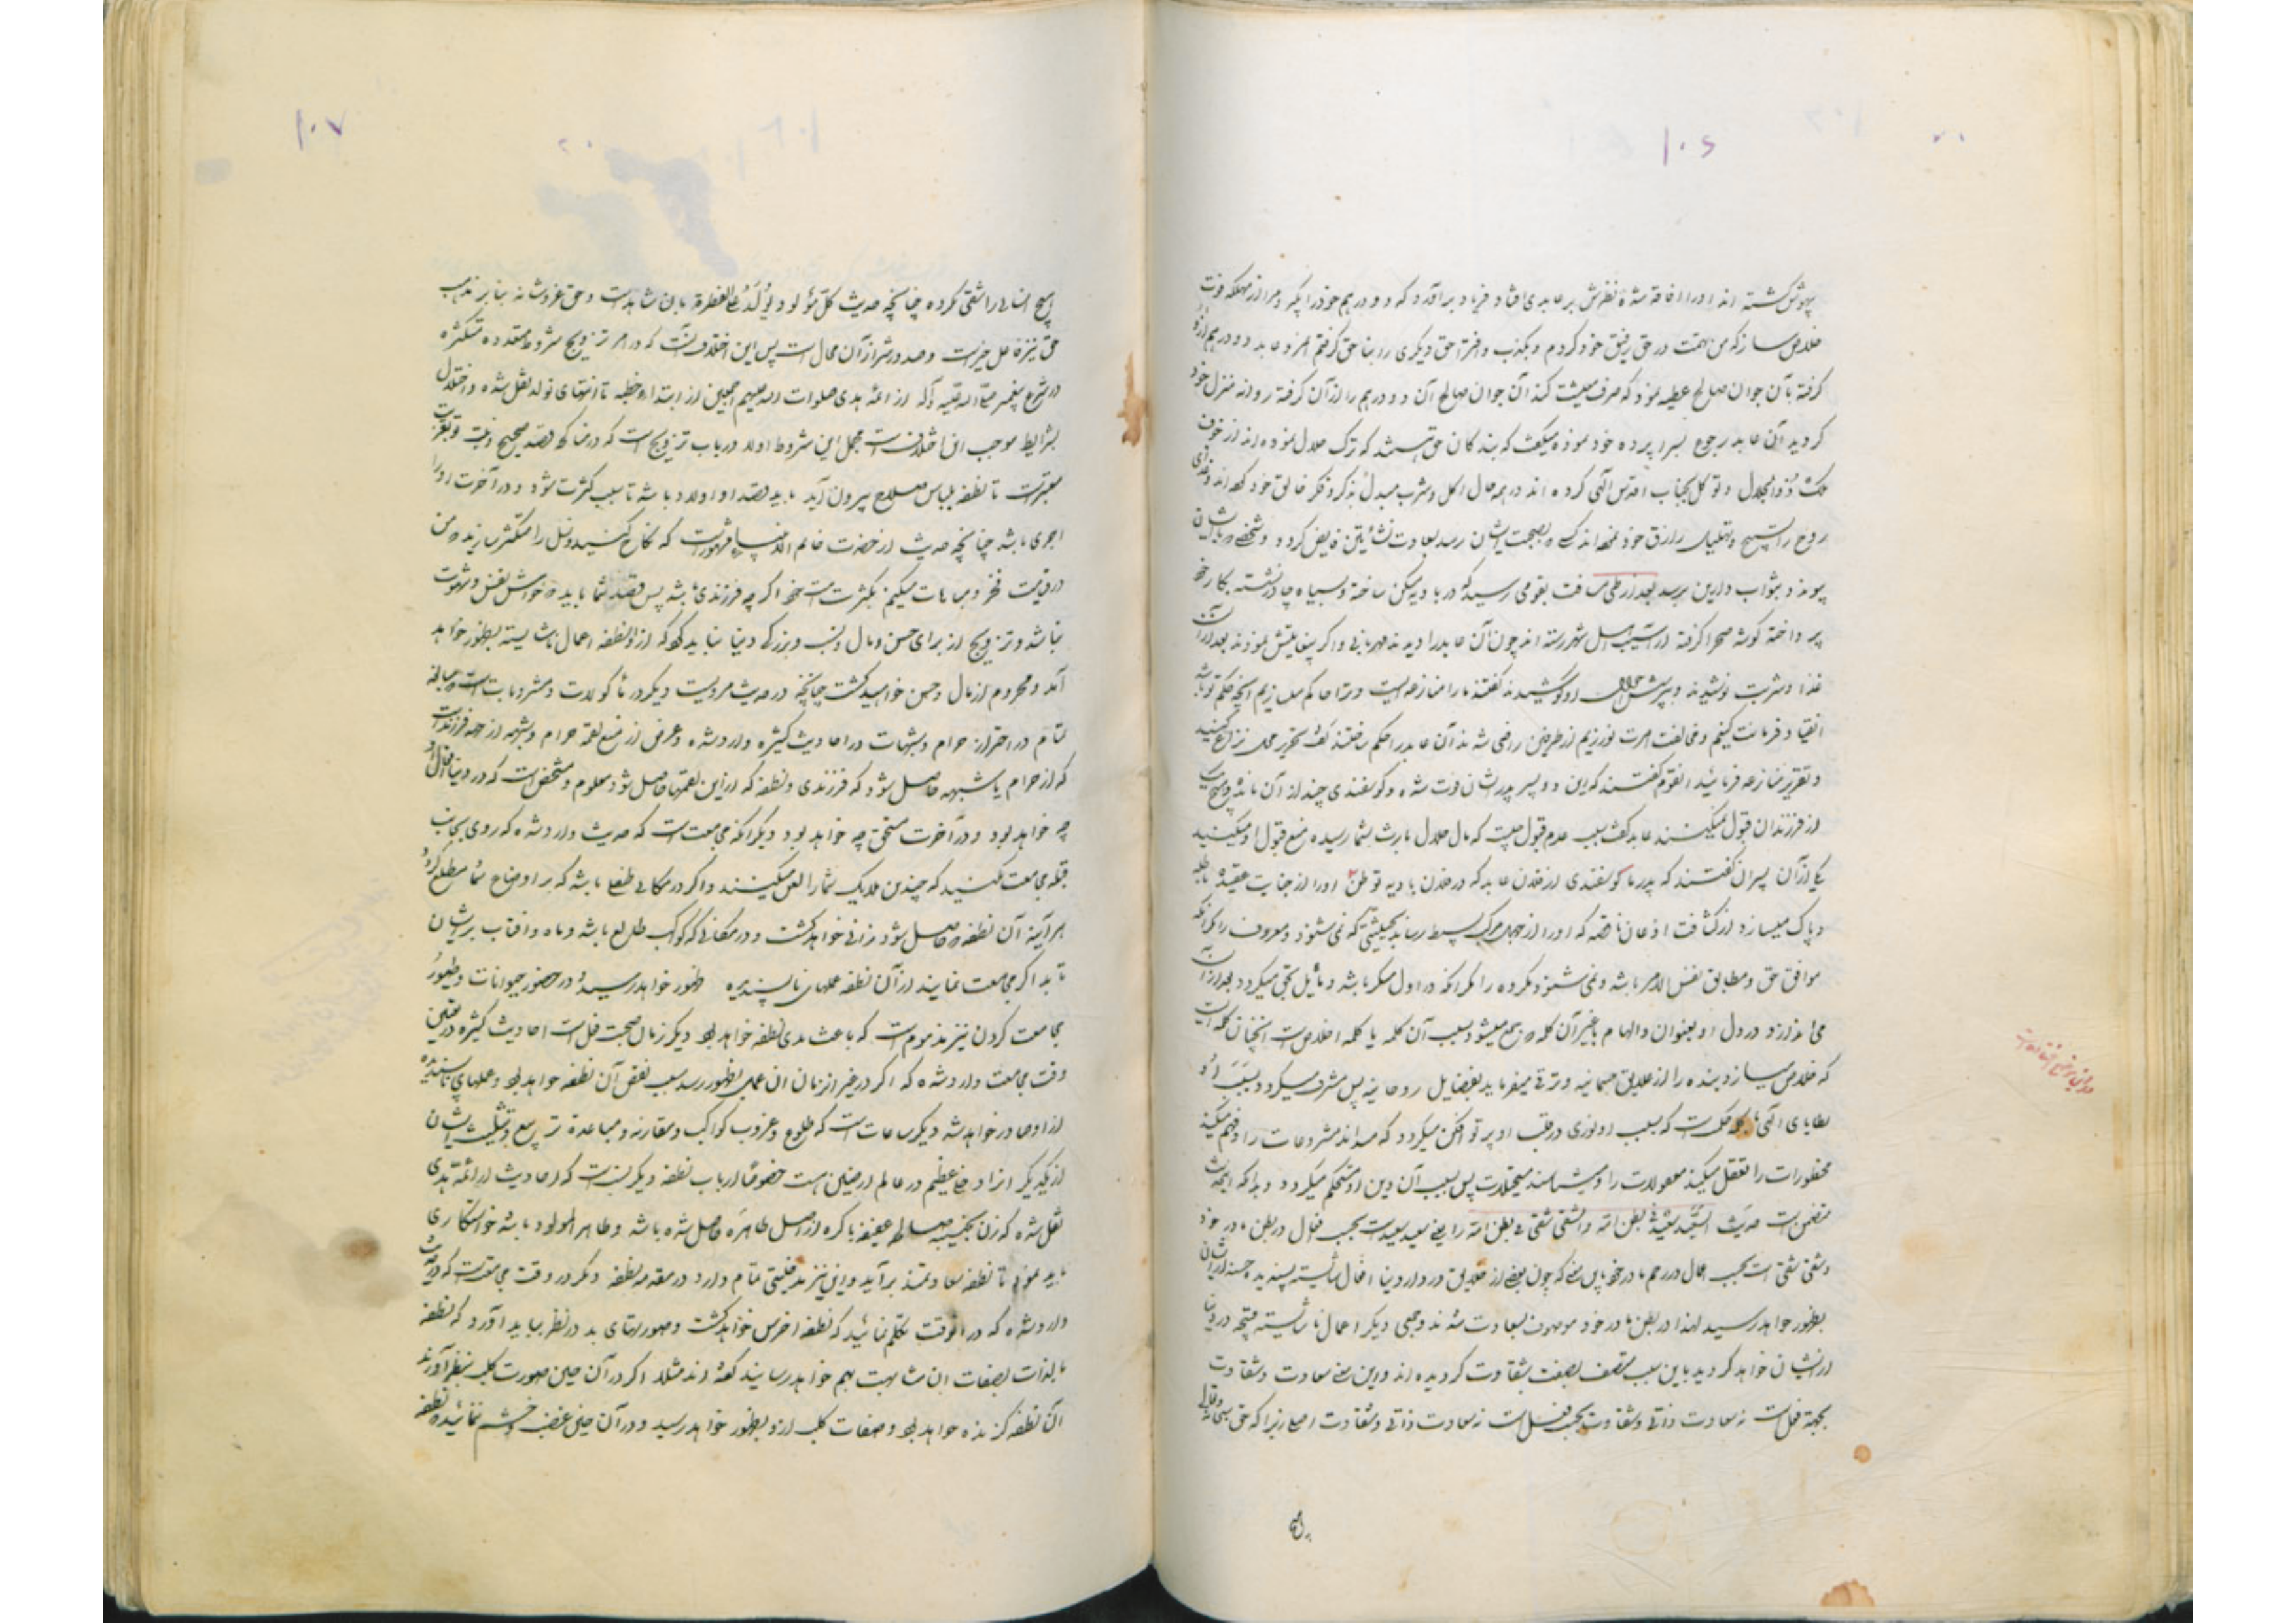 ۱۰۶
بیهوش گشته اند او را افاقه شده نظرش بر عابدی افتاد و فریاد برآورد که دو درهم خود را بگیر و مرا از مهلکه فوت
خلاص ساز که من تهمت در حق رفیق خود کردم و بکذب و افترا حق دیگری را بناحق گرفتم مرد عابد دو درهم از او
گرفته بآن جوان صالح عطیه نمود که صرف معیشت کند آن جوان صالح آن دو درهم را از آن گرفته روانه منزل خود
گردید آن عابد رجوع بسراپرده خود نموده میگفت که بندگان حق هستند که ترک حلال نموده اند از خوف
ملک ذوالجلال و توکل بجناب اقدس الهی کرده اند در همه حال اکل و شرب مبدل بذکر و فکر خالق خود
روح را تسبیح و تهلیل رازق خود اند که بصحبت ایشان رسد بسعادت نشأتین فایض گردد و شخصی که با ایشان
پیوندد بثواب دارین برسد بعد از طی مسافت بقومی رسید که در بادیه مسکن ساخته و سیاه چادر نشسته بکار خود
پرداخته گوشه صحرا گرفته از آسیب اهل شهر رسته اند چون آن عابد را دیدند مهربانی واگر نمودند بعد از آن
غذا و شربت نوشیدند و بپرسش حال او کوشیدند گفتند ما را منازعه ایست و ترا حاکم میسازیم آنچه حکم تو باشد
انقیاد و فرمانت کنیم و مخالفت امرت نورزیم از طرفین راضی شدند آن عابد را حکم ساختند گفت تحریر محل نزاع کنید
و تقریر منازعه فرمائید آنقوم گفتند که این دو پسر پدرشان فوت شده و گوسفندی چند از آن مانده و هیچ یک
از فرزندان قبول نمیکنند عابد گفت سبب عدم قبول چیست که مال حلال بارث بشما رسیده منع قبول او میکنید
یکی از آن پسران گفتند که پدر ما گوسفندی از فلان عابد که در فلان بادیه توطن او را از جنایت عقیده باطله
و پاک میسازد از کثافت اذعان ناقصه که او را از جهل مرکب ببسیط رساند بحیثیتی که نمی شنود معروف را مگر آنکه
موافق حق و مطابق نفس الامر باشد و نمی شنود مکروه را مگر آنکه در اول منکر باشد و مأیل بحق میگردد بعد از آن
می اندازد در دل او بعنوان والهام یا غیر آن کلمه که جمع میشود بسبب آن کلمه یا کلمه اخلاص است آنچنان کلمه ایست
که خلاص میسازد بنده را از علایق جسمانیه و ترقی میفرماید بفضایل روحانیه پس مشرف میگردد بسبب او
عطایای الهی یا کلمه حکمت است که بسبب او نوری در قلب او پرتو افکن میگردد که میداند مشروعات را و فهم میکند
محظورات را تعقل میکند معقولات را و میشناسد متخیلات پس بسبب آن دین او مستحکم میگردد و بدانکه اینحدیث
متضمن است حدیث السعید سعید فی بطن امه و الشقی شقی فی بطن امه را یعنی سعید سعید است بحسب فعال در بطن مادر خود
و شقی شقی است بحسب اعمال در رحم مادر خود باین معنی که چون بعضی از خلایق در دار دنیا افعال شایسته پسندیده حسنه از ایشان
بظهور خواهد رسید لهذا در بطن مادر خود موصوف بسعادت شدند و جمعی دیگر اعمال ناشایسته قبیحه در دنیا
از ایشان خواهد گردید باین سبب متصف بصفت شقاوت گردیده اند و این معنی سعادت و شقاوت
بجهة فعل است نه سعادت ذاتی و شقاوت بحسب فعل است نه سعادت ذاتی و شقاوت اصلی زیرا که حق سبحانه و تعالی
۱۰۷
هیچ انسانی را شقی نکرده چنانچه حدیث کل مولود یولد علی الفطرة بان شاهد است و حق عز و شانه بنا بر مذهب
حق نیز فاعل خیر است و صدور شر از آن محال است پس این اختلاف آنست که در امر تزویج شروط متعدده متکثره
در شرع پیغمبر صلی الله علیه و آله از ائمه هدی صلوات الله علیهم اجمعین از ابتداء خطبه تا انتهای تولد نقل شده و اختلال
بشرایط موجب این اختلاف است مجمل این شروط اولا در باب تزویج است که در نکاح قصد صحیح و نیت و تقرب
معتبر است تا نطفه بلباس صلاح بیرون آید باید قصد او اولاد باشد تا سبب کثرت شود و در آخرت او را
اجری باشد چنانچه حدیث از حضرت خاتم الانبیاء مشهور است که نکاح کنید و نسل را متکثر سازید که من
در قیامت فخر و مباهات میکنم بکثرت امت خود اگر چه فرزندی باشد پس قصد شما باید که خواهش نفس و شهوت
نباشد و تزویج از برای حسن و مال و نسب و بزرگی دنیا نباید کرد که از آن نطفه اعمال ناشایسته بظهور خواهد
آمد و محروم از مال و حسن خواهید گشت چنانچه در حدیث مرویست دیگر در مأکولات و مشروبات است که مبالغه
تمام در احتراز حرام و شبهات در احادیث کثیره وارد شده و غرض از منع لقمه حرام و شبهه از جهة فرزند است
که از حرام یا شبهه حاصل شود که فرزندی و نطفه که از این لقمها حاصل شود معلوم و مشخص است که در دنیا افعال او
چه خواهد بود و در آخرت مستحق چه خواهد بود دیگر آنکه مجامعت است که حدیث وارد شده که روی بجانب
قبله مجامعت نکنید که چندین ملایک شما را لعن میکنند و اگر در مکانی طفلی باشد که بر اوضاع شما مطلع گردد
هر آینه آن نطفه که حاصل شود زانی خواهد گشت و در مکانی که کواکب طالع باشد و ماه و آفتاب بر ایشان
تابد اگر مجامعت نمایند از آن نطفه عملهای ناپسندیده ظهور خواهد رسید و در حضور حیوانات و طیور
مجامعت کردن نیز مذموم است که باعث بدی نطفه خواهد بود دیگر زمان صحبت فعل است احادیث کثیره در تعیین
وقت مجامعت وارد شده که اگر در غیر از زمان آن عمل بظهور رسد سبب نقص آن نطفه خواهد بود و عملهای ناپسندیده
از او صادر خواهد شد دیگر ساعات است که طلوع و غروب کواکب و مقارنه و مباعدة تربیع و تثلیث ایشان
از یکدیگر اثراد عظیم در عالم ارضین هست خصوصا در باب نطفه دیگر نسب است که احادیث از ائمه هدی
نقل شده که زن نجیبه صالحه عفیفه باکره از اصل طاهره حاصل شده باشد و طاهر المولود باشد خواستگاری
باید نمود تا نطفه سعادتمند برآید و این نیز مدخلیتی تمام دارد در مقدمه نطفه دیگر در وقت مجامعت است که در حدیث
وارد شده که در آنوقت تکلم ننمائید که نطفه اخرس خواهد گشت و صورتهای بد در نظر نباید آورد که نطفه
بالذات بصفات آن مشابهت بهم خواهد رسانید گفته اند مثلا اگر در آن حین صورت کلب بنظر آورند
آن نطفه گزنده خواهد بود و صفات کلب از او بظهور خواهد رسید و در آن حین غضب و خشم ننمائید که نطفه